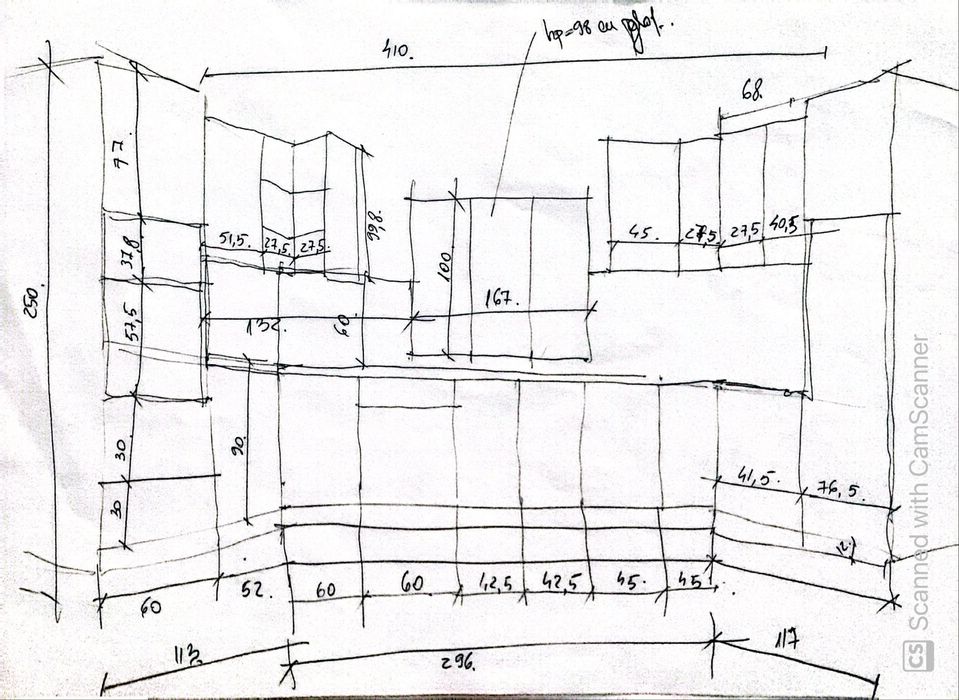 hp=98 cu
410.
68.
97
37,8
57,5
30.
30
250.
51,5.
27,5.
27,5.
99,8.
132.
60.
100
167.
45.
27,5
27,5
40,5
90.
41,5.
76,5.
12.
60
52.
60
60
42,5
42,5
45.
45.
113.
296.
117
CS Scanned with CamScanner